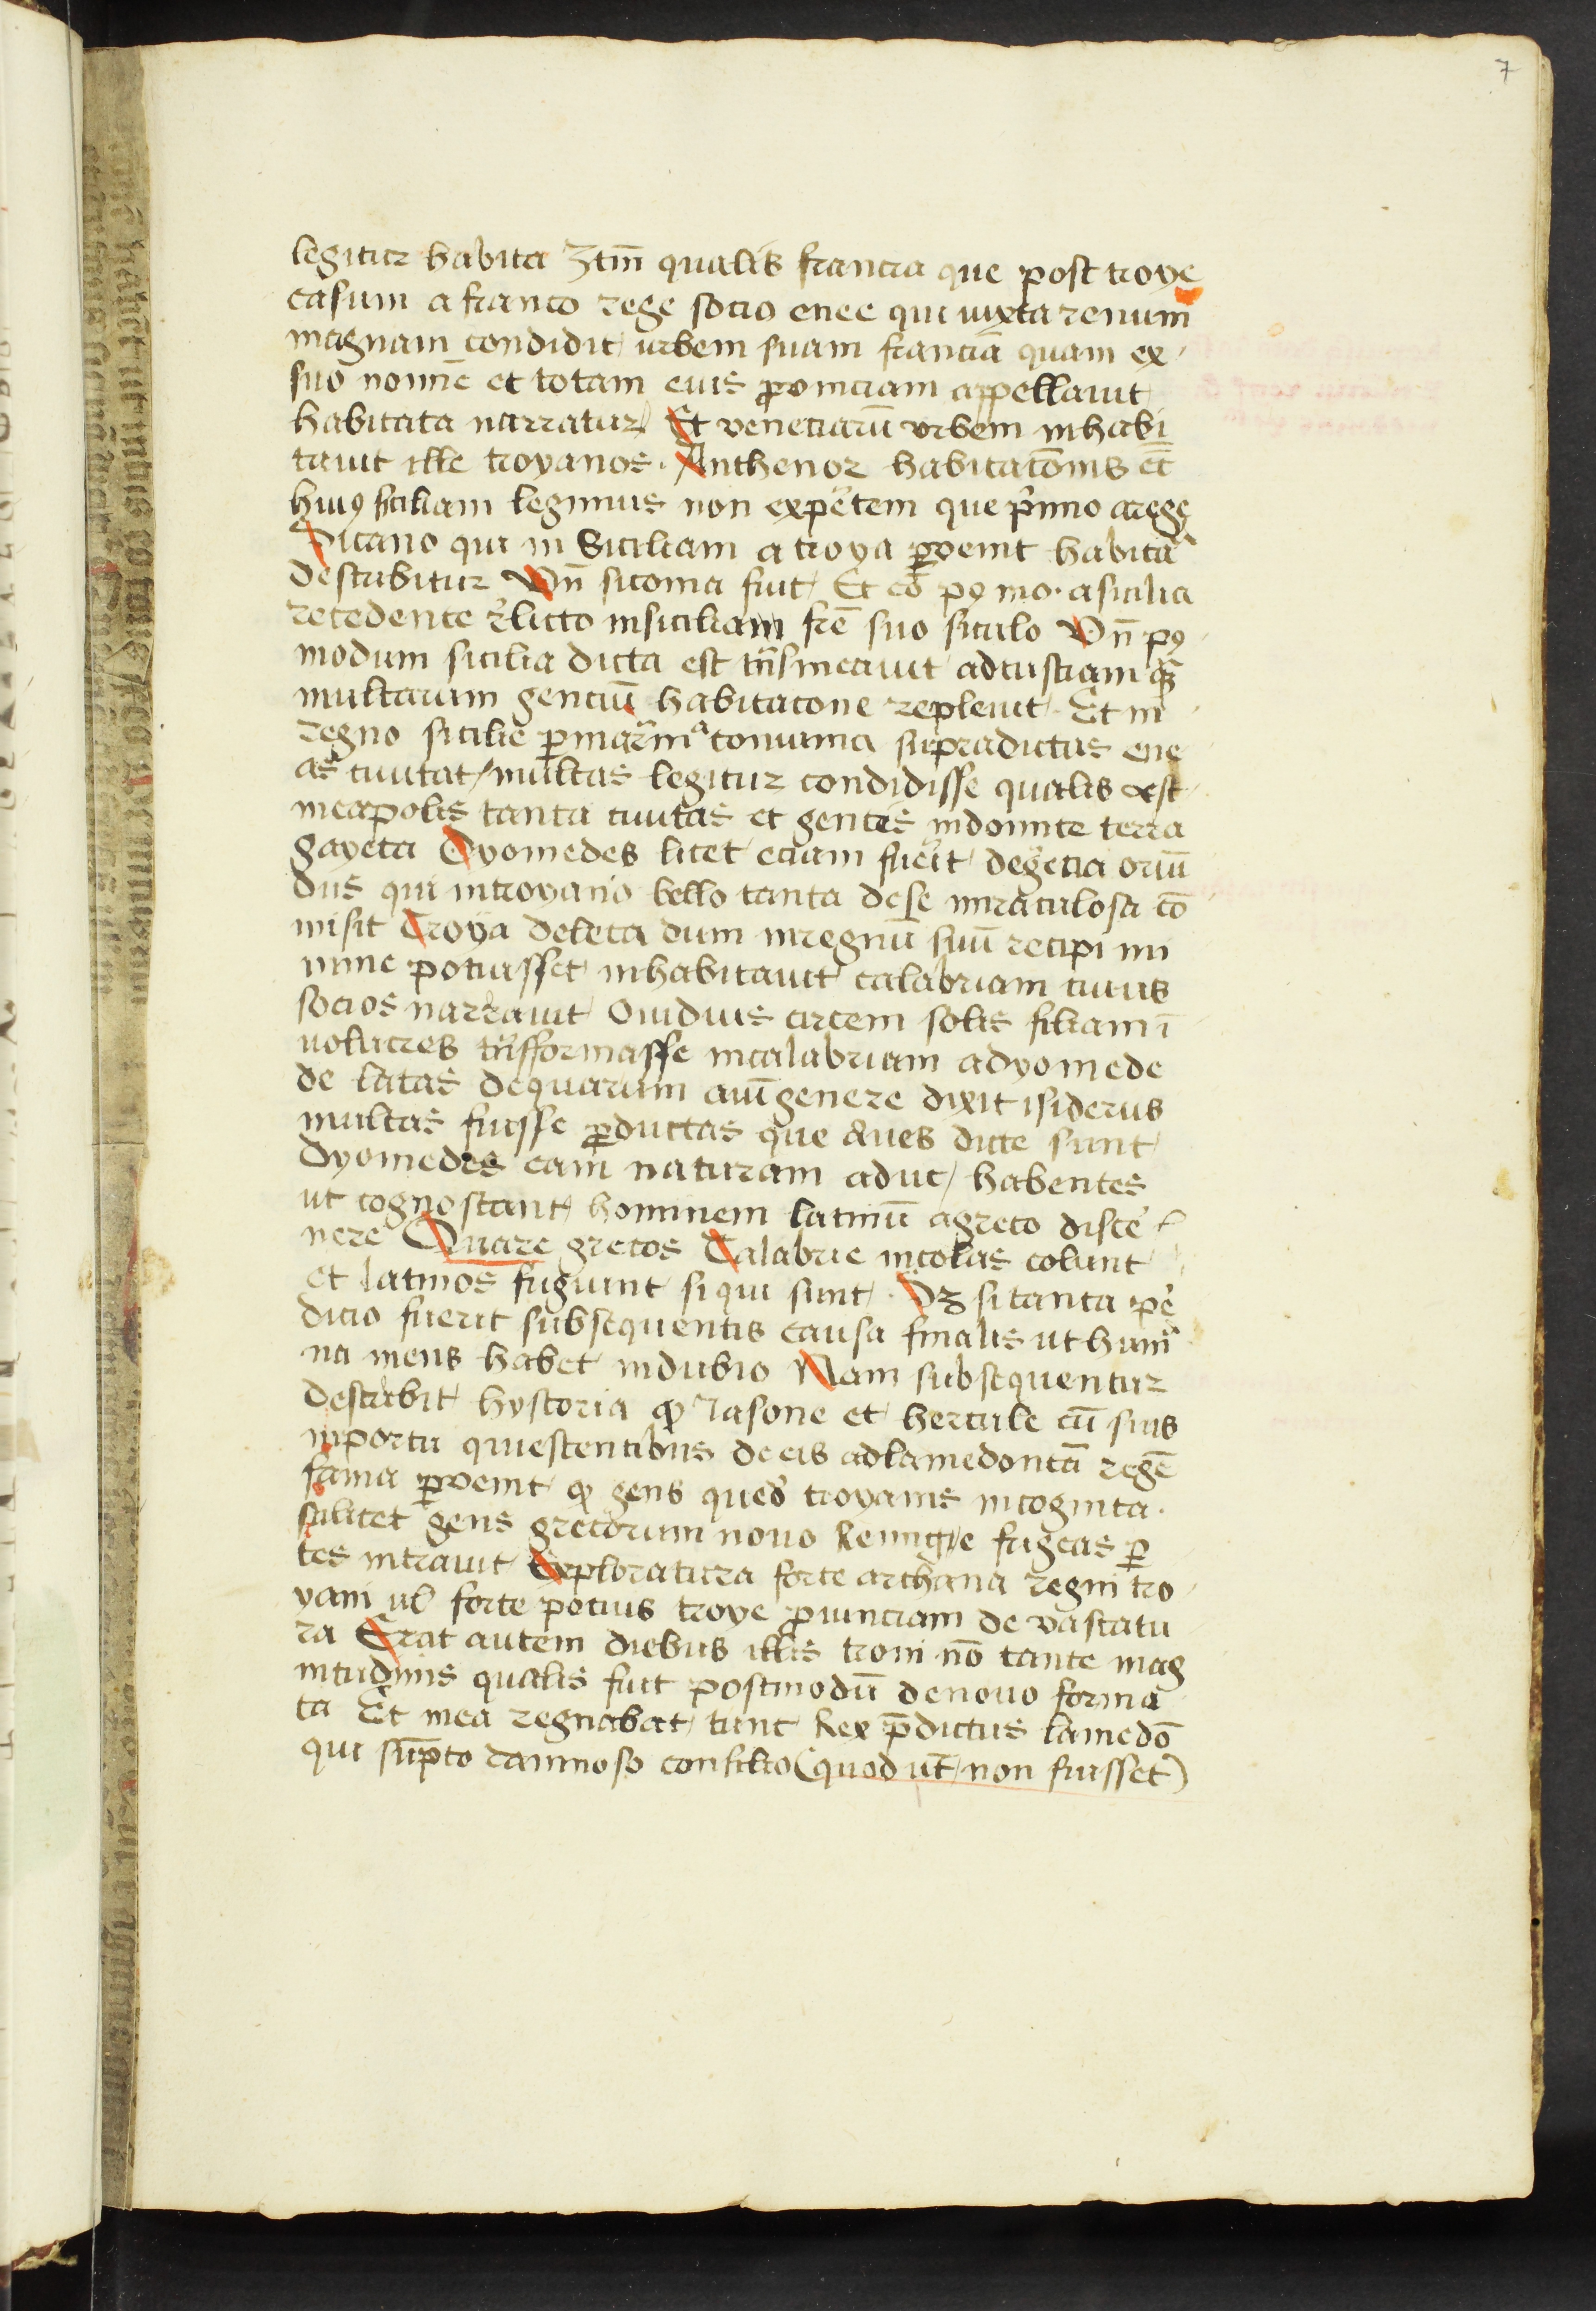 7
legitur habita Ztm̄ qualis francia que post troye
casum a franco rege socio enee qui iuxta renum
magnam condidit urbem suam franciā quam ex
suo nomine et totam eius ꝓvinciam appellauit
habitata narratur Et veneciarū vrbem inhabi
tauit ille troyanos. Anthenor habitatōnis et̄
huiꝰ siciliam legimus non expertem que primo a rege
Sicano qui in Siciliam a troya ꝑvenit habita
describitur Vn̄ sicania fuit Et eō pꝰ mo. a sicilia
recedente relicto in siciliam fr̄e suo siculo Vn̄ pꝰ
modum sicilia dicta est tn̄smeauit ad tusciam quā
multarum genciū habitacone repleuit Et in
regno sicilie ꝑ maritima convicina supradictus ene
as ciuitat multas legitur condidisse qualis est
neapolis tanta ciuitas et gentis indomite terra
gayeta Dyomedes licet eciam fuerit de grecia oriū
dus qui in troyano bello tanta de se miraculosa cō
misit Troya deleta dum in regnū suū recipi mi
nime potuisset inhabitauit calabriam cuius
socios narrauit Ouidius circem solis filiam ī
volucres tn̄sformasse in calabriam a dyomede
de latas de quarum auiū genere dixit isiderus
multas fuisse ꝓductas que Aues dicte sunt
Dyomedes eam naturam aduc habentes
ut cognoscant hominem latinū a greco discer
nere Quare grecos Calabrie incolas colunt
et latinos fugiunt si qui sunt. Sz si tanta per
dicio fuerit subsequentis causa finalis ut huma
na mens habet in dubio Nam subsequentur
describit hystoria ꝙ Iasone et hercule cū suis
in portu quiescentibus de eis ad lamedontā regē
fama ꝑvenit ꝙ gens quedā troyanis incognita.
scilicet gens grecorum nouo Remigie frigeas ꝑ
tes intrauit Exploratura forte archana regni tro
yani ul̄ forte pocius troye ꝓvinciam de vastatu
ra Erat autem diebus illis troni nō tante mag
nitudinis qualis fuit postmodū de nouo forma
ta Et in ea regnabat tunc Rex p̄dictus lamedō
qui sūpto damnoso consilio (quod ut̄ non fuisset)